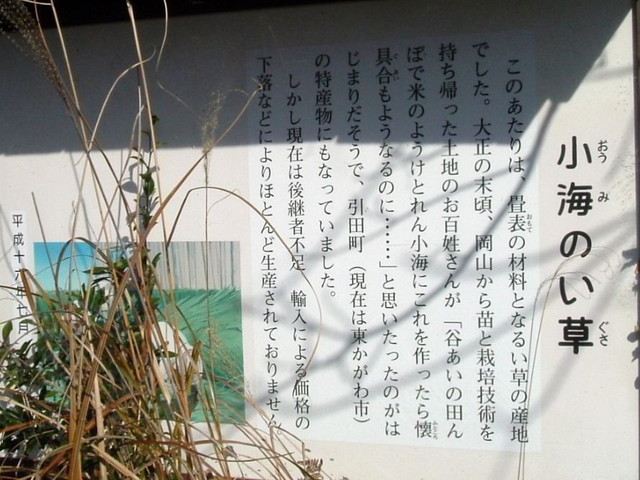 小海のい草
おうみ
ぐさ
このあたりは、畳表の材料となるい草の産地
でした。大正の末頃、岡山から苗と栽培技術を
持ち帰った土地のお百姓さんが「谷あいの田ん
ぼで米のようけとれん小海にこれを作ったら懐
具合もようなるのに……」と思いたったのがは
じまりだそうで、引田町（現在は東かがわ市）
の特産物にもなっていました。
しかし現在は後継者不足、輸入による価格の
下落などによりほとんど生産されておりません
平成十八年七月